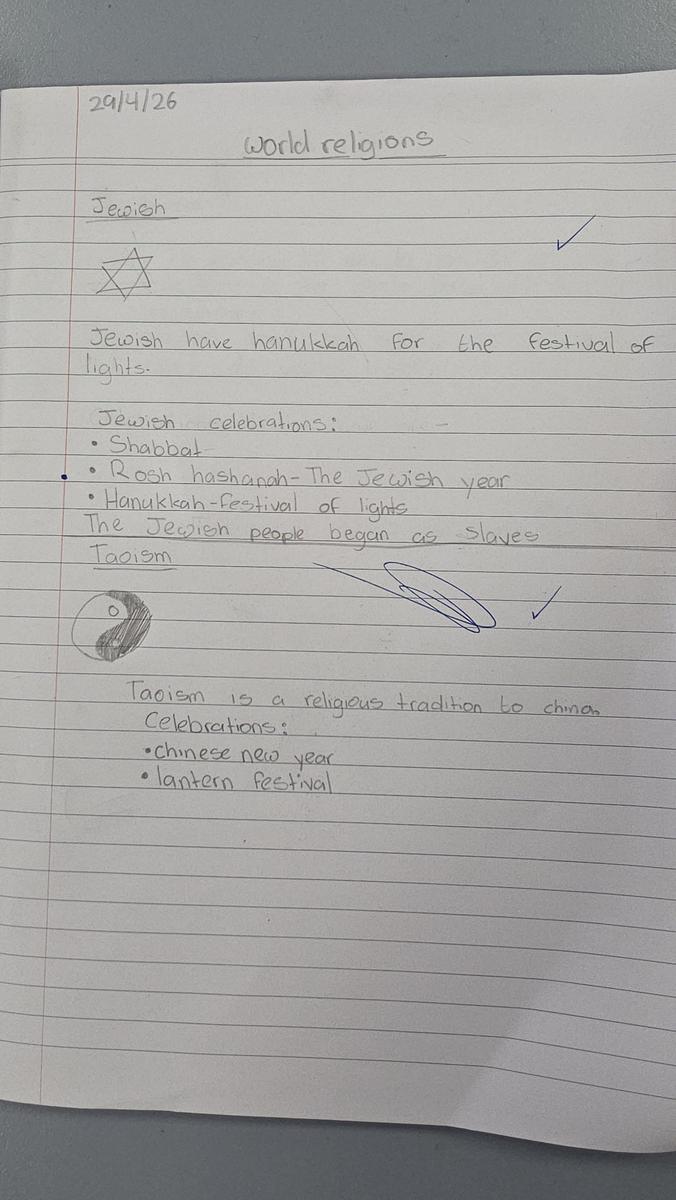 29/4/26
World religions
Jewish
Jewish have hanukkah for the festival of
lights.
Jewish celebrations:
• Shabbat
• Rosh hashanah- The Jewish year
• Hanukkah-festival of lights
The Jewish people began as slaves
Taoism
Taoism is a religious tradition to china.
Celebrations:
•chinese new year
• lantern festival